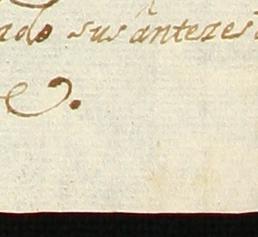 ado sus anteres